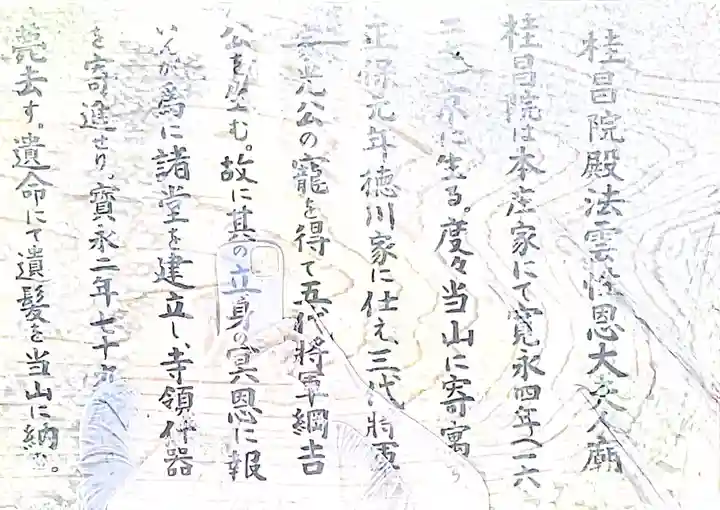 桂昌院殿法雲性恩大夫人廟
桂昌院は本庄家にて寛永四年(一六
二七)京に生る。度々当山に寄寓
正保元年徳川家に仕え、三代将軍
家光公の寵を得て五代將軍綱吉
公を生む。故に其の立身の冥恩に報
いんが為に諸堂を建立し、寺領什器
を寄進せり。寳永二年七十九
薨去す。遺命にて遺髪を当山に納む。